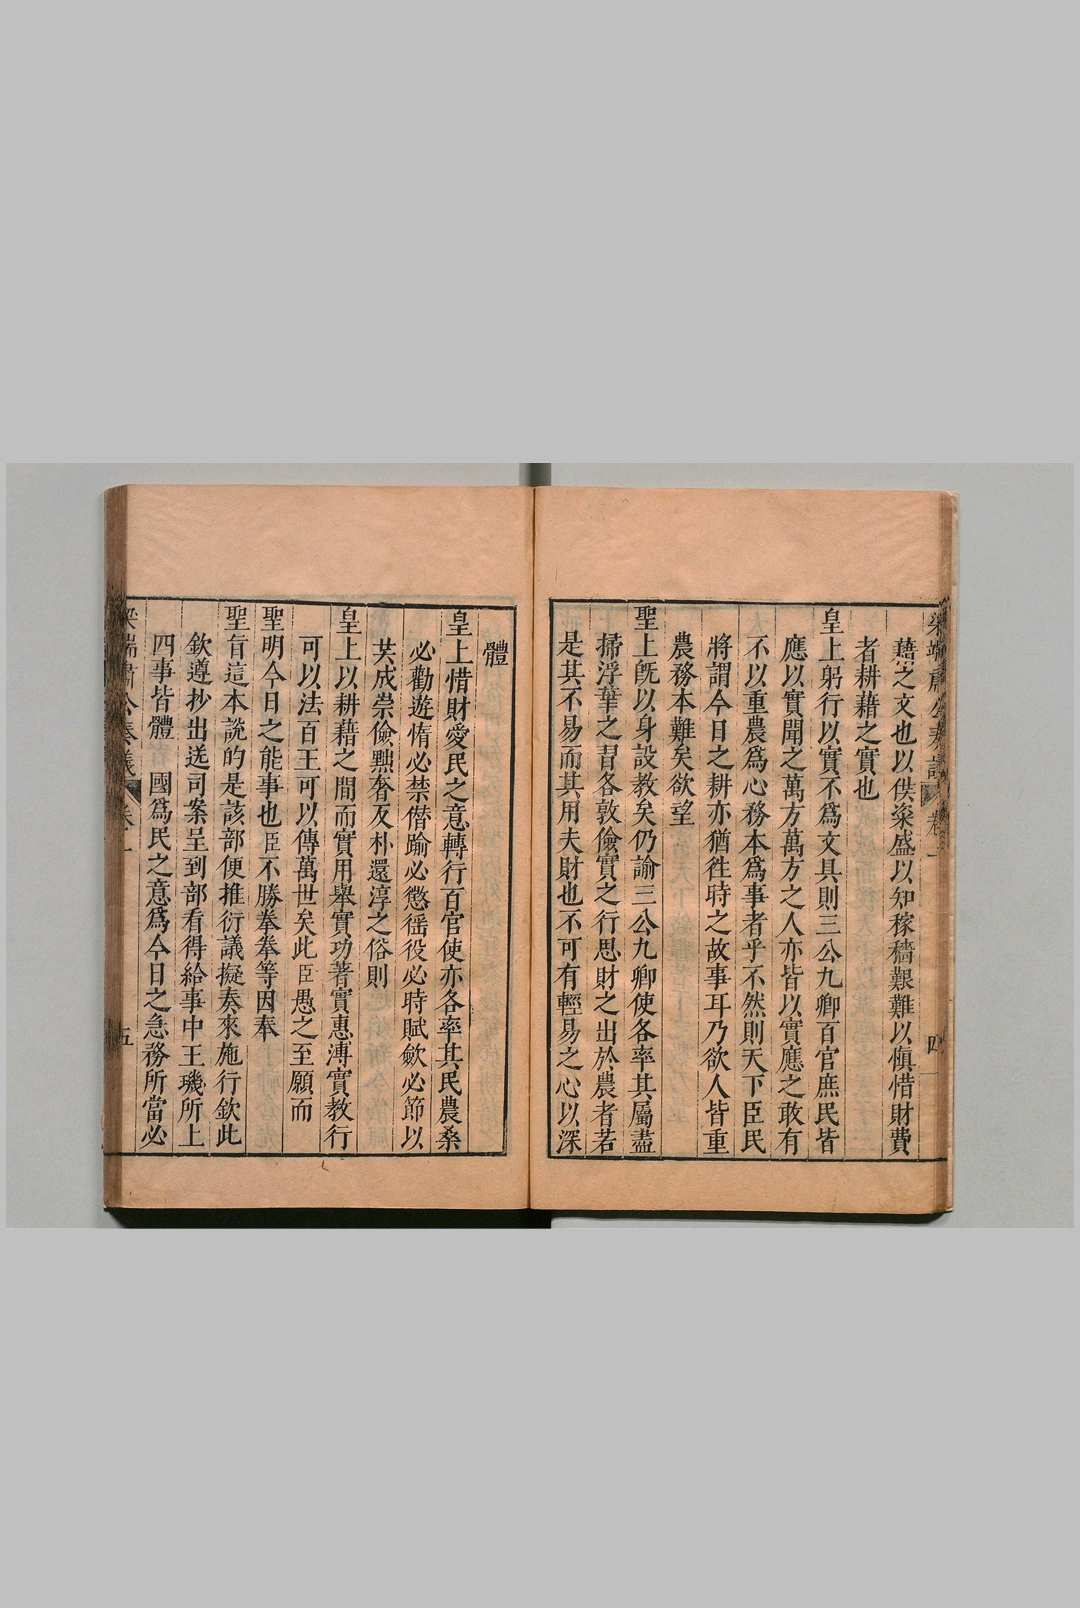 梁端肅公奏議 卷一 四
藉之文也以供粢盛以知稼穡艱難以愼惜財費
者耕藉之實也
皇上躬行以實不爲文具則三公九卿百官庶民皆
應以實聞之萬方萬方之人亦皆以實應之敢有
不以重農爲心務本爲事者乎不然則天下臣民
將謂今日之耕亦猶徃時之故事耳乃欲人皆重
農務本難矣欲望
聖上旣以身設教矣仍諭三公九卿使各率其屬盡
掃浮華之習各敦儉實之行思財之出於農者若
是其不易而其用夫財也不可有輕易之心以深
體
皇上惜財愛民之意轉行百官使亦各率其民農桑
必勸遊惰必禁僭踰必懲徭役必時賦歛必節以
共成崇儉黜奢反朴還淳之俗則
皇上以耕藉之間而實用舉實功著實惠溥實教行
可以法百王可以傳萬世矣此臣愚之至願而
聖明今日之能事也臣不勝拳拳等因奉
聖旨這本說的是該部便推衍議擬奏來施行欽此
欽遵抄出送司案呈到部看得給事中王璣所上
四事皆體 國爲民之意爲今日之急務所當必
梁端肅公奏議 卷一 五